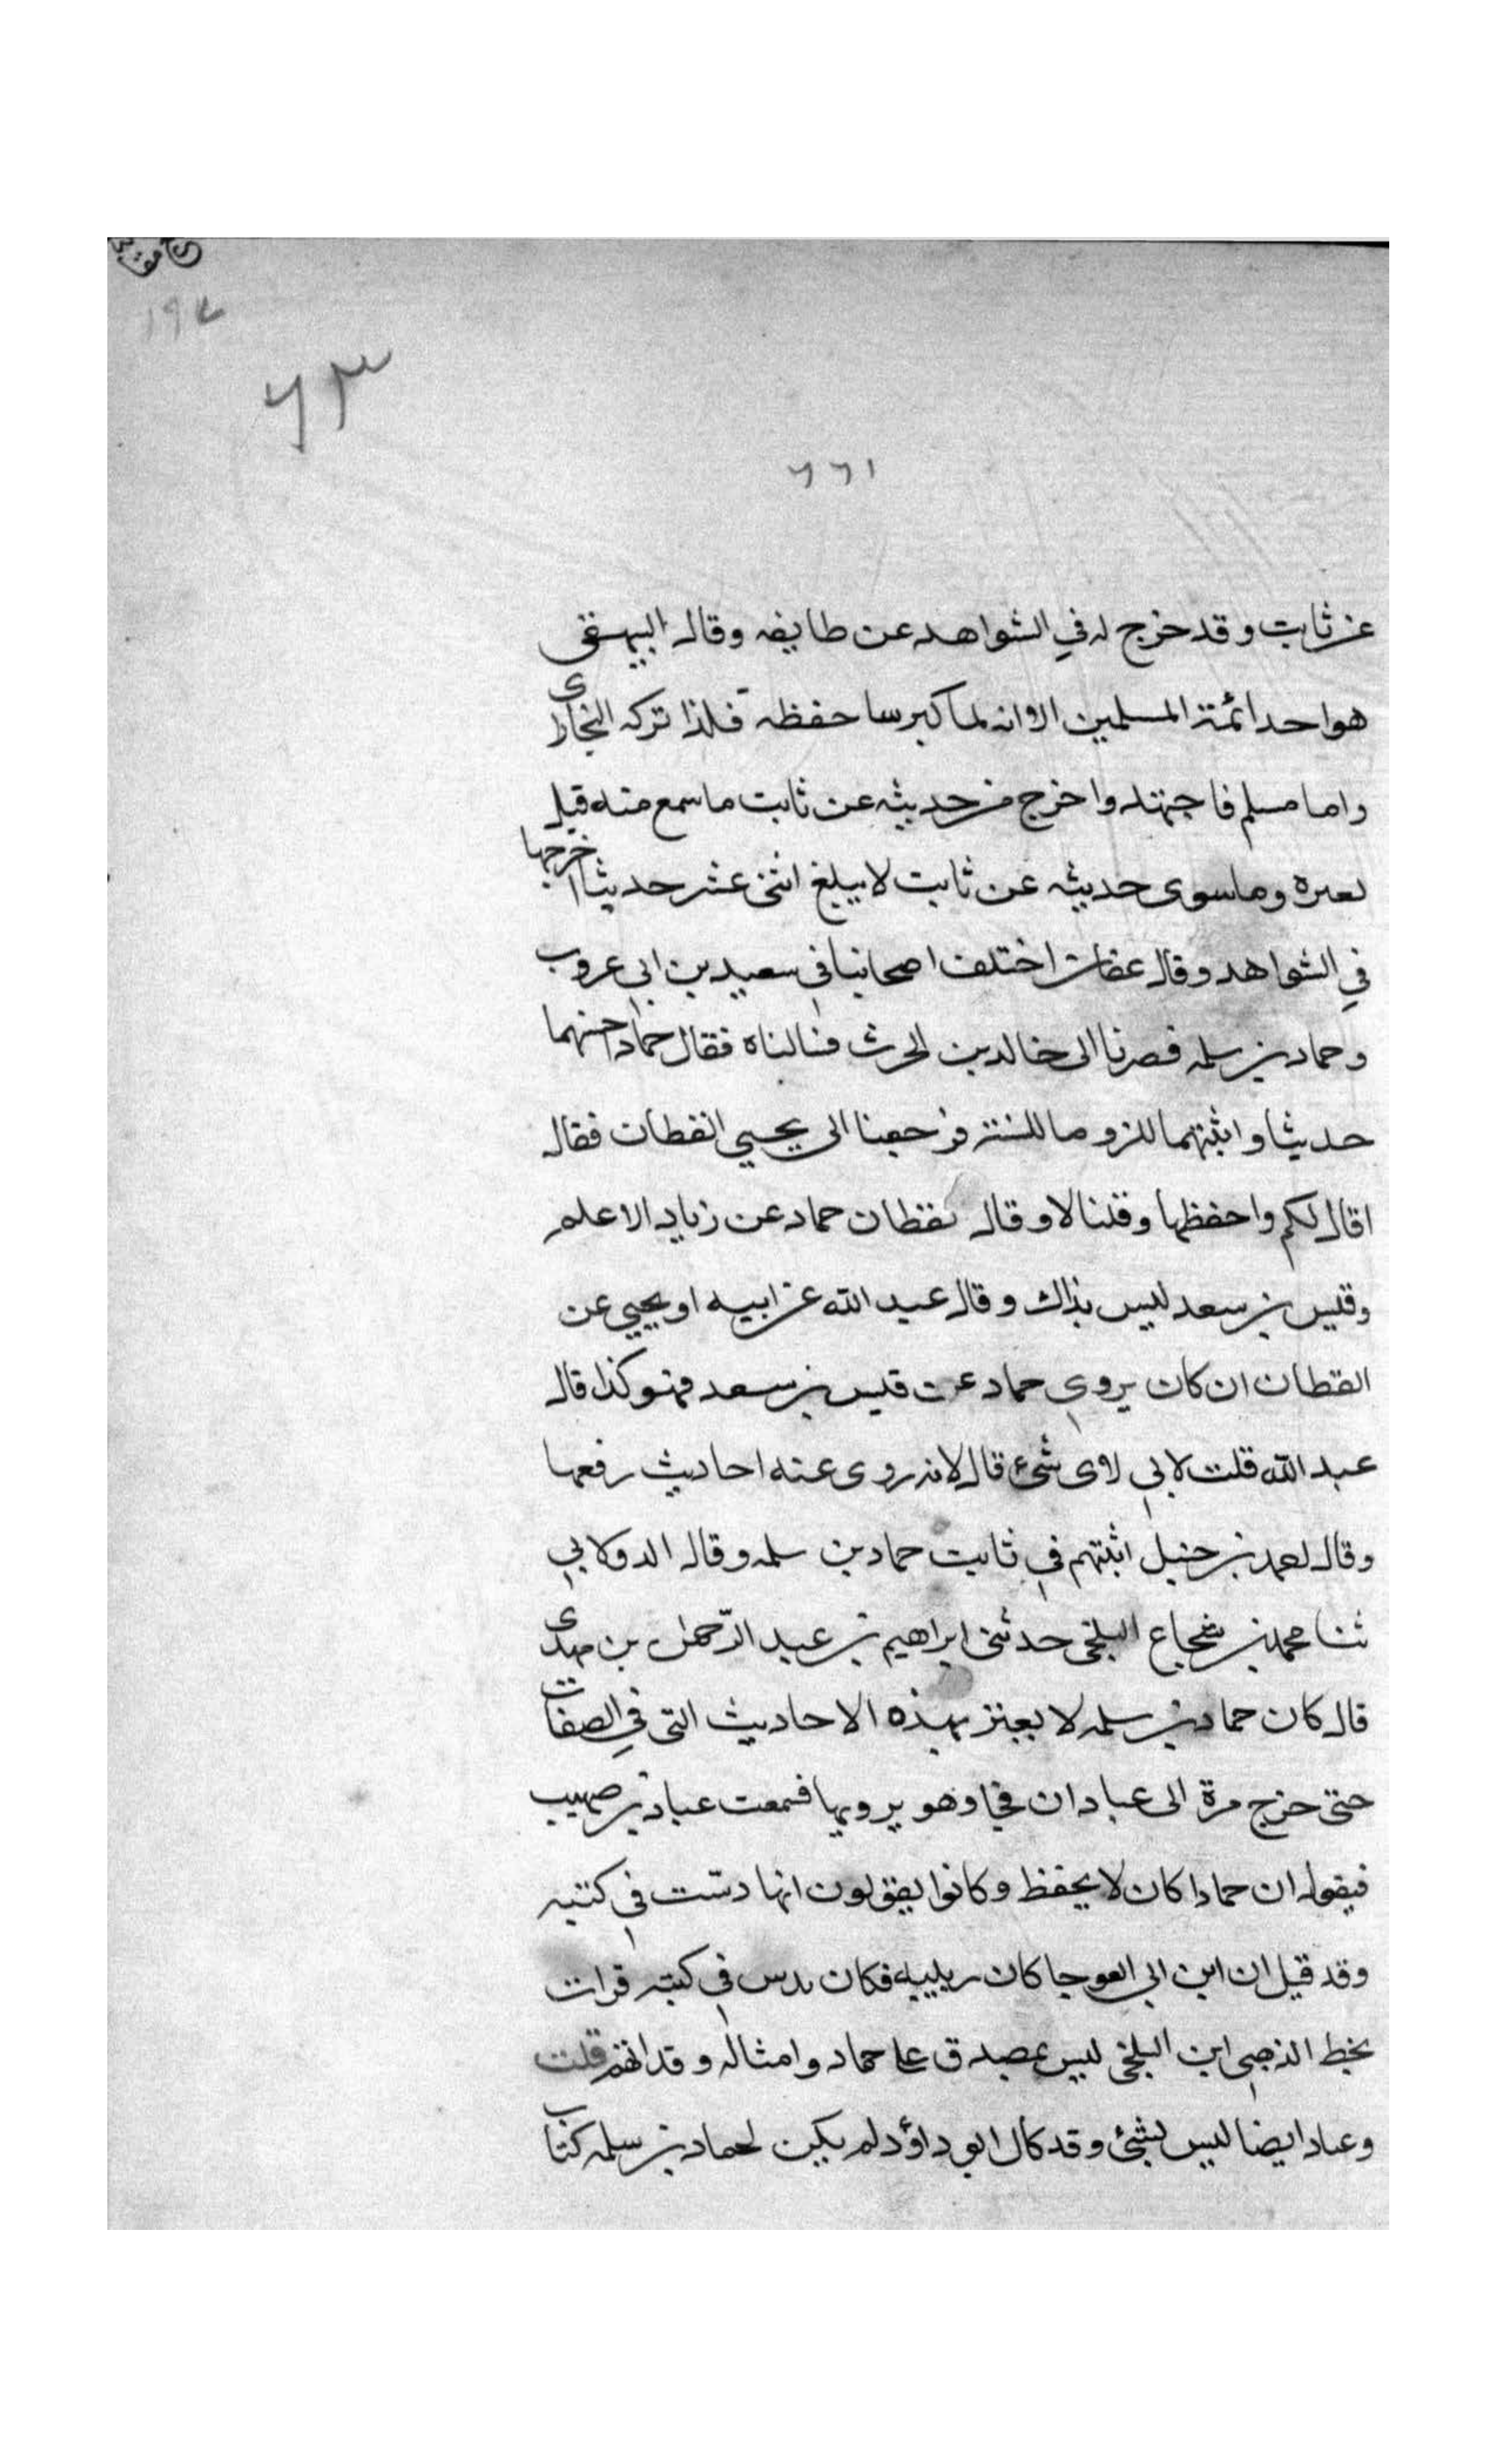 ١٩٧
٦٣
٦٦١
عن ثابت وقد خرج له في الشواهد عن طايفه وقال البيهقى
هو احد ائمة المسلمين الا انه لما كبر ساحفظه فلذا تركه البخارى
واما مسلم فاجتهد واخرج من حديثه عن ثابت ما سمع منه قبل
لعىره وما سوى حديثه عن ثابت لا يبلغ اثنى عشر حديثا اخرجها
في الشواهد وقال عفان اختلف اصحابنا في سعيد بن ابى عروب
وحماد بن سلمه فصرنا الى خالد بن الحرث فسالناه فقال حماد احسنهما
حديثا واثبتهما للزوما للسنة فرجعنا الى يحيى القطان فقال
اقال لكم واحفظها وقلنا لا وقال نقطان حماد عن زياد الاعلم
وقيس بن سعد ليس بذاك وقال عبد الله عن ابيه او يحيى عن
القطان ان كان يروي حماد عن قيس بن سعد فهو كذا قال
عبد الله قلت لابي لاى شىء قال لانه روى عنه احاديث رفعها
وقال احمد بن حنبل اثبتهم في ثابت حماد بن سلمه وقال الدولابي
ثنا محمد بن شجاع البلخى حدثنى ابراهيم بن عبد الرحمن بن مهدى
قال كان حماد بن سلمه لا يعىز بهذه الاحاديث التى في الصفات
حتى خرج مرة الى عبادان فجا وهو يرويها فسمعت عباد بن صهيب
فيقول ان حمادا كان لا يحفظ وكانوا يقولون انها دست في كتبه
وقد قيل ان ابن ابي العوجا كان ربيبه فكان يدس في كتبه قرات
بخط الذهبى ابن البلخى ليس بمصدق على حماد وامثاله وقد اتهم قلت
وعباد ايضا ليس بشئ وقد كال ابو داؤد لم يكن لحماد بن سلمه كتاب